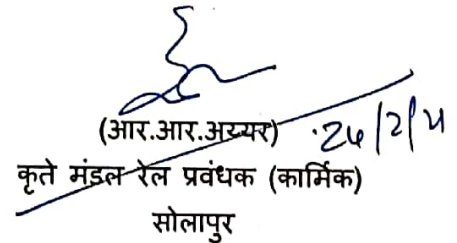 (आर.आर.अय्यर)
कृते मंडल रेल प्रवंधक (कार्मिक)
सोलापुर